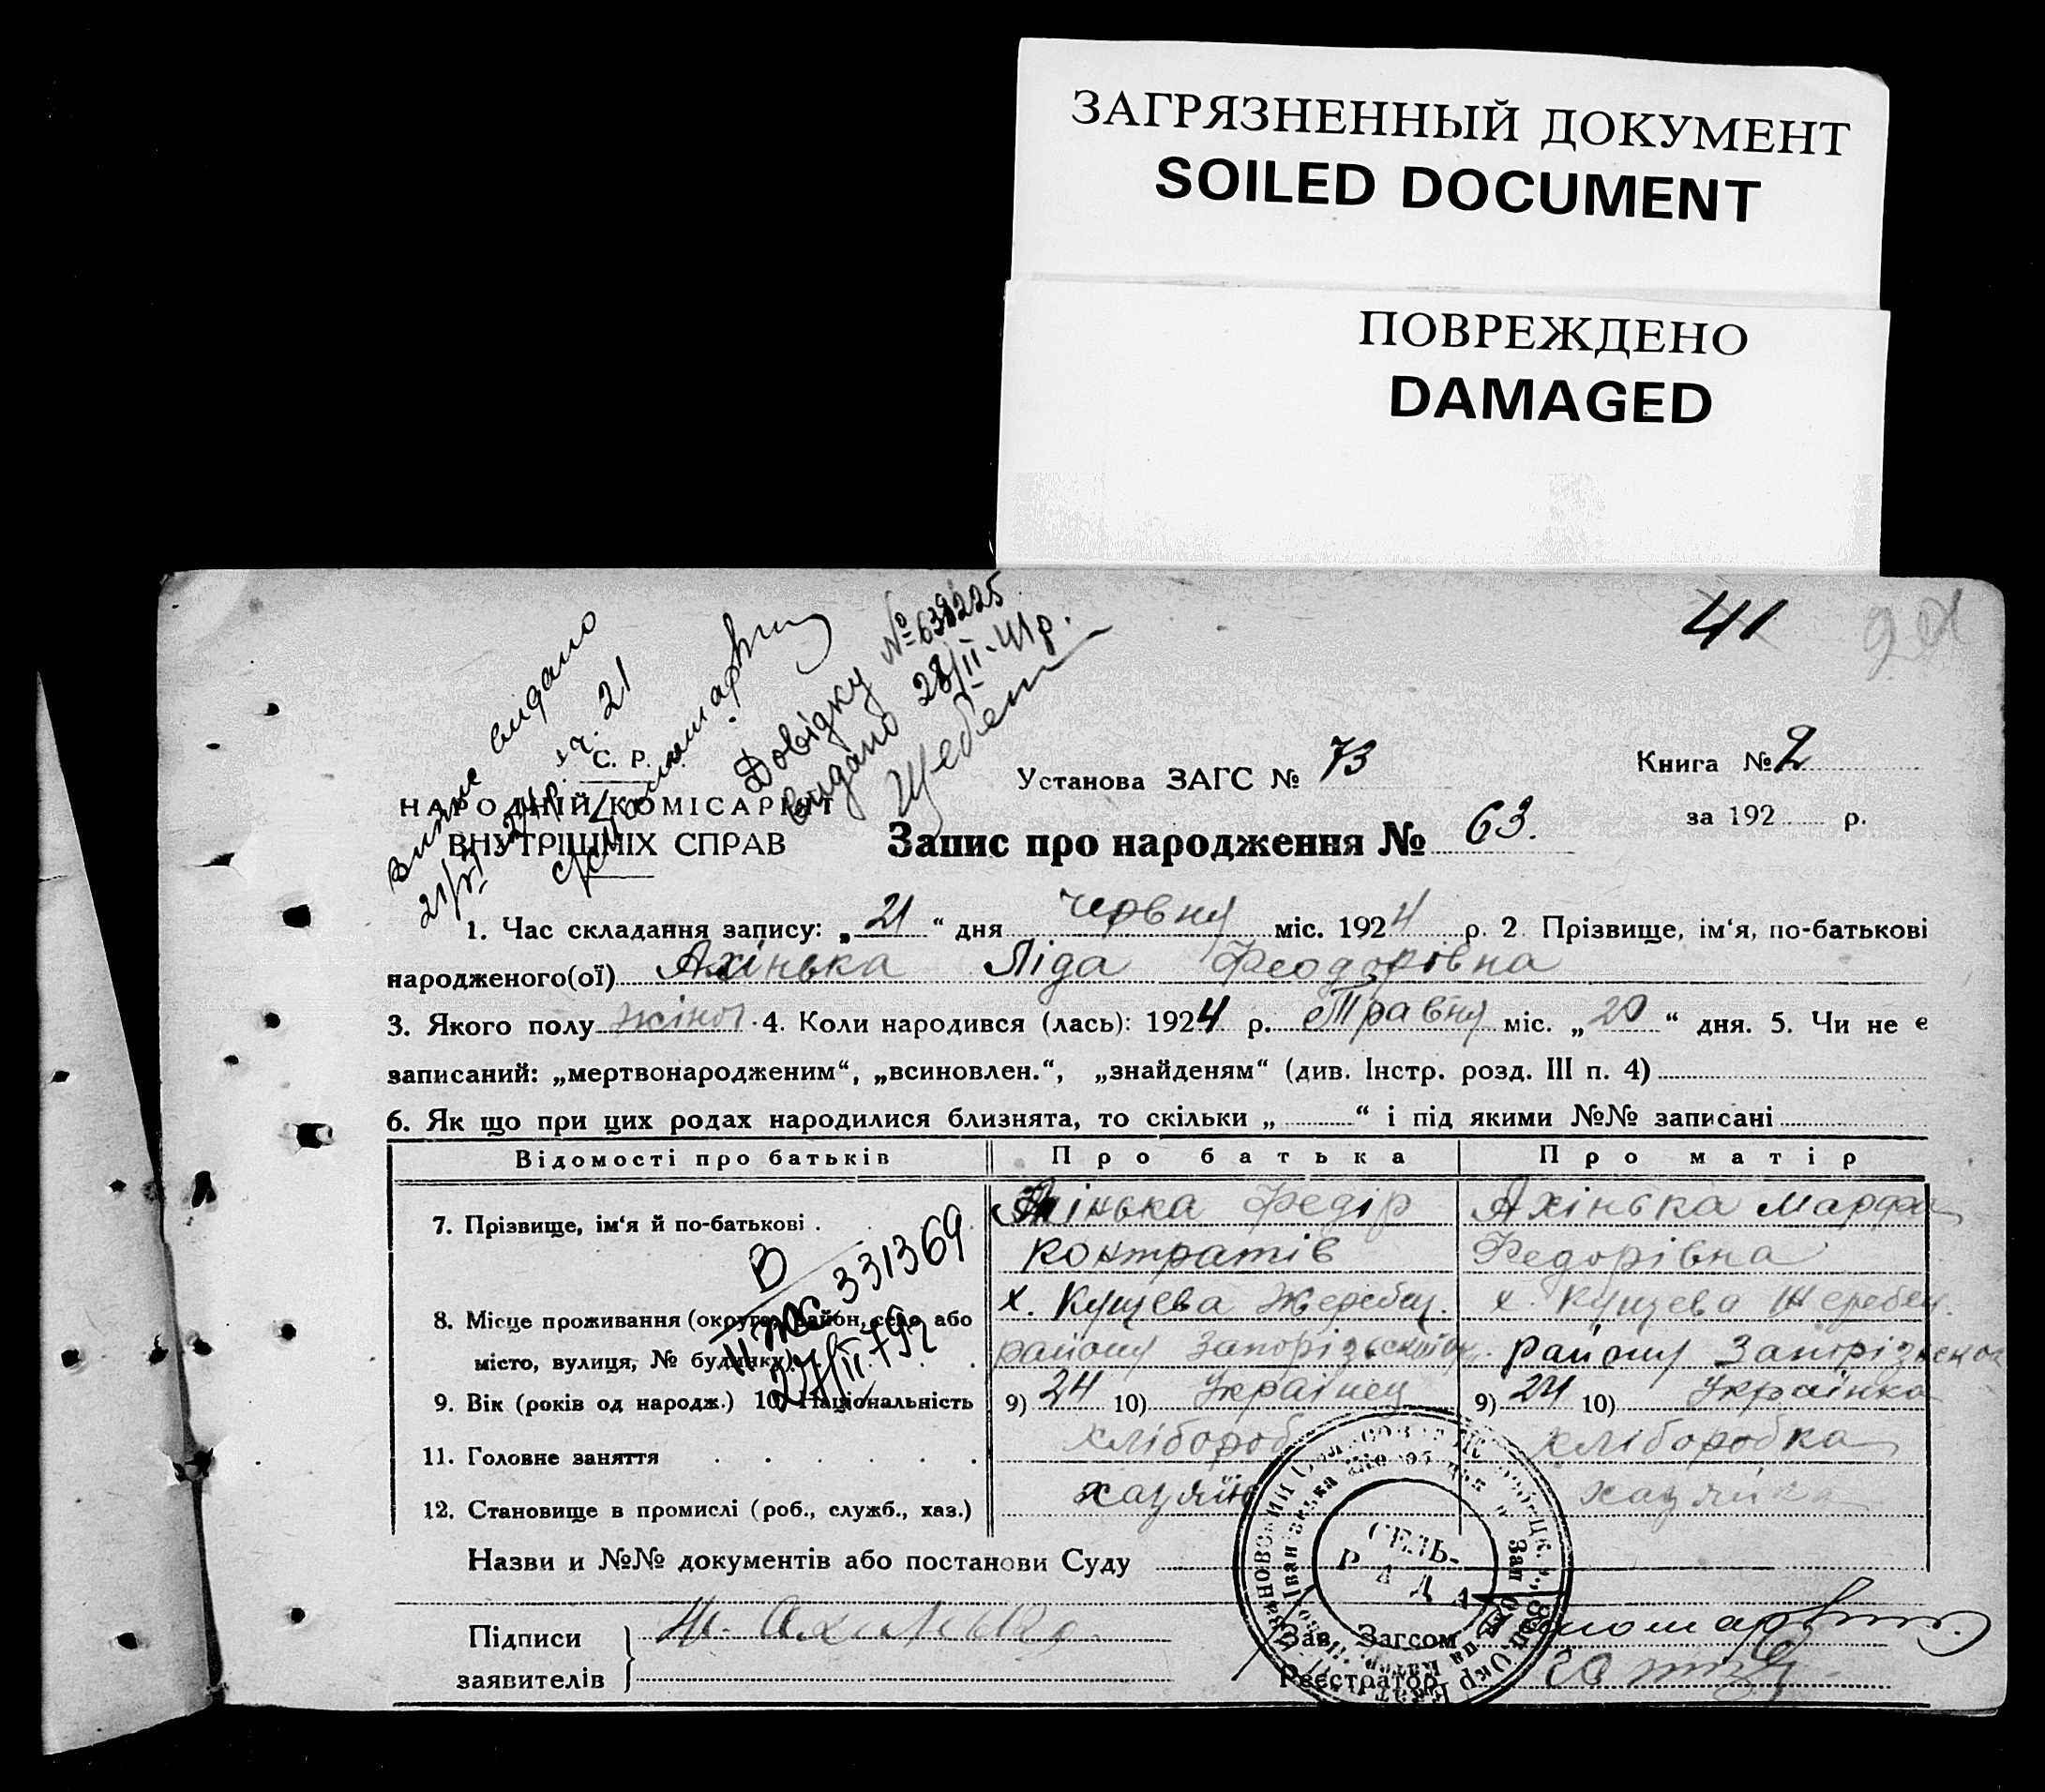 ЗАГРЯЗНЕННЫЙ ДОКУМЕНТ
SOILED DOCUMENT
ПОВРЕЖДЕНО
DAMAGED
41
видано
ч. 21
Довідку № 638225
видано 28/II-41р.
С. Р.
НАРОДНІЙ КОМІСАРІЯТ
ВНУТРІШНІХ СПРАВ
Установа ЗАГС № 73
Книга № 2
за 192 р.
Запис про народження № 63.
1. Час складання запису: „21“ дня червня міс. 1924 р. 2 Прізвище, ім‘я, по-батькові
народженого(ої) Ахінька Ліда Феодорівна
3. Якого полу жіноч. 4. Коли народився (лась): 1924 р. Травня міс. „20“ дня. 5. Чи не є
записаний: „мертвонародженим“, „всиновлен.“, „знайденям“ (див. Інстр. розд. III п. 4)
6. Як що при цих родах народилися близнята, то скільки „ “ і під якими №№ записані
Відомості про батьків Про батька Про матір
7. Прізвище, ім‘я й по-батькові . Ахінька Федір Ахінька Марфа
Контратів Федорівна
В
ЖС 331369
8. Місце проживання (округа, район, село або х. Кущева Жеребец. х. Кущева Жеребец.
місто, вулиця, № будинку) району Запорізьскої ок. району Запорізьскої
9. Вік (років од народж.) 10. Національність 9) 24 10) Українец 9) 24 10) Українка
11. Головне заняття хлібороб хліборобка
12. Становище в промислі (роб., служб., хаз.) хазяїн хазяйка
СЕЛЬ-
РАДА
Назви и №№ документів або постанови Суду
Підписи
заявителів
Зав. Загсом
Реєстратор